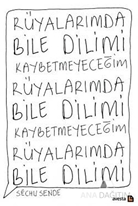 RÜYALARIMDA
BİLE DİLİMİ
KAYBETMEYECEĞİM
RÜYALARIMDA
BİLE DİLİMİ
KAYBETMEYECEĞİM
RÜYALARIMDA
BİLE DİLİMİ
SÉCHU SENDE
avesta